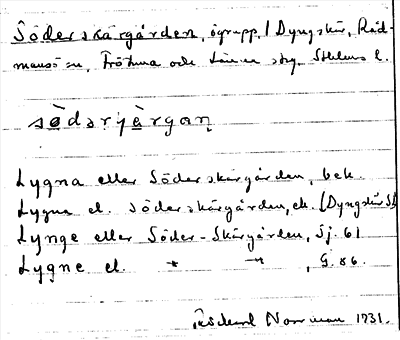 Söderskärgården, ögrupp, / Dyngskär, Råd-
mansö sn, Frötuna och Länna skg. Sthlms l.
södərʃærgaɳ
Lygna eller Söderskärgården, bek.
Lygna el. Söderskärgården, ek. (Dyngskär S)
Lynge eller Söder-Skärgården, Sj. 61
Lygne el. " " , G. 86.
Rickard Norrman 1931.